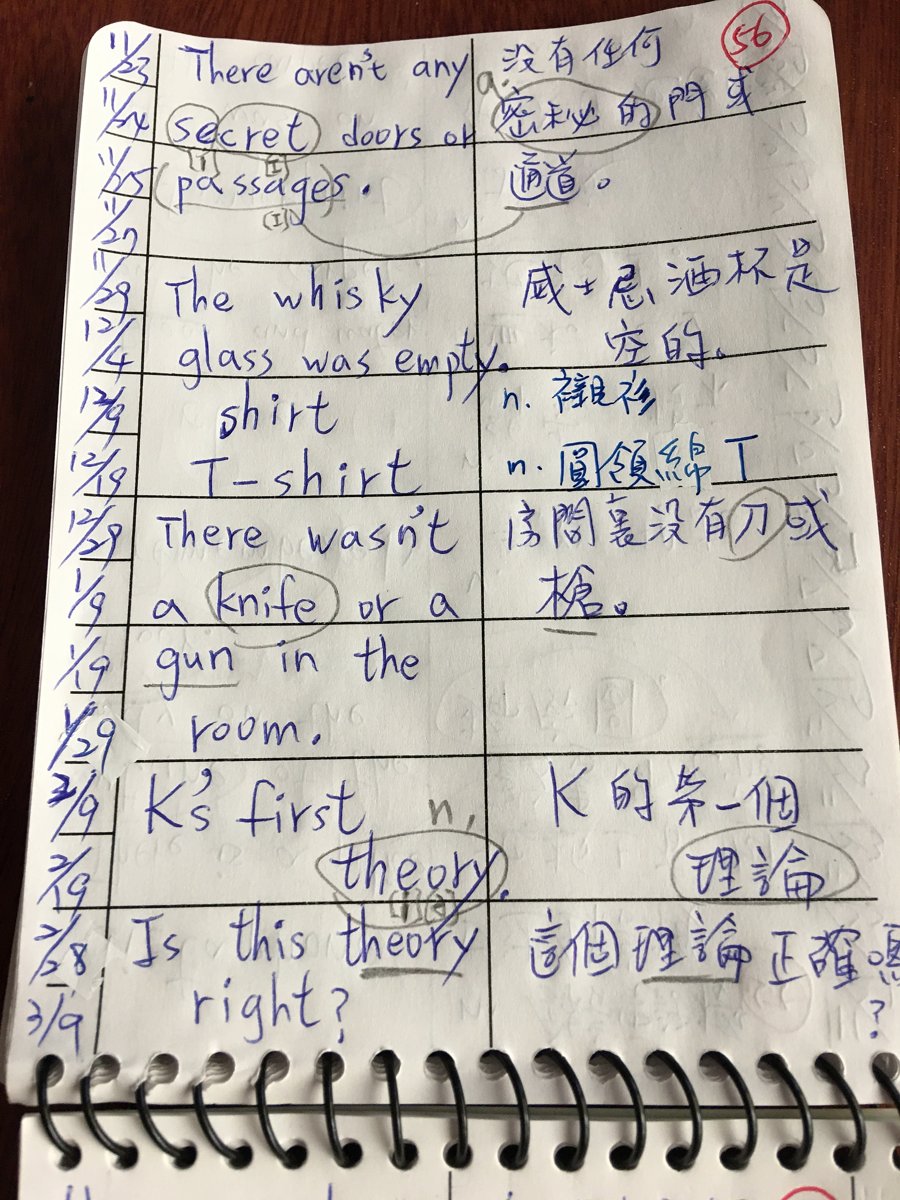 56
11/23 There aren't any 没有任何
11/24 secret doors or a. 密秘的門或
[i] [I]
11/25 passages. 通道。
[I]
11/27
11/29 The whisky 威士忌酒杯是
12/4 glass was empty. 空的。
12/9 shirt n. 襯衫
12/19 T-shirt n. 圓領綿T
12/29 There wasn't 房間裏没有刀或
1/9 a knife or a 槍。
1/19 gun in the
1/29 room.
2/9 K's first n. K的第一個
2/19 theory. 理論
2/28 Is this theory 這個理論正確嗎
3/9 right? ?